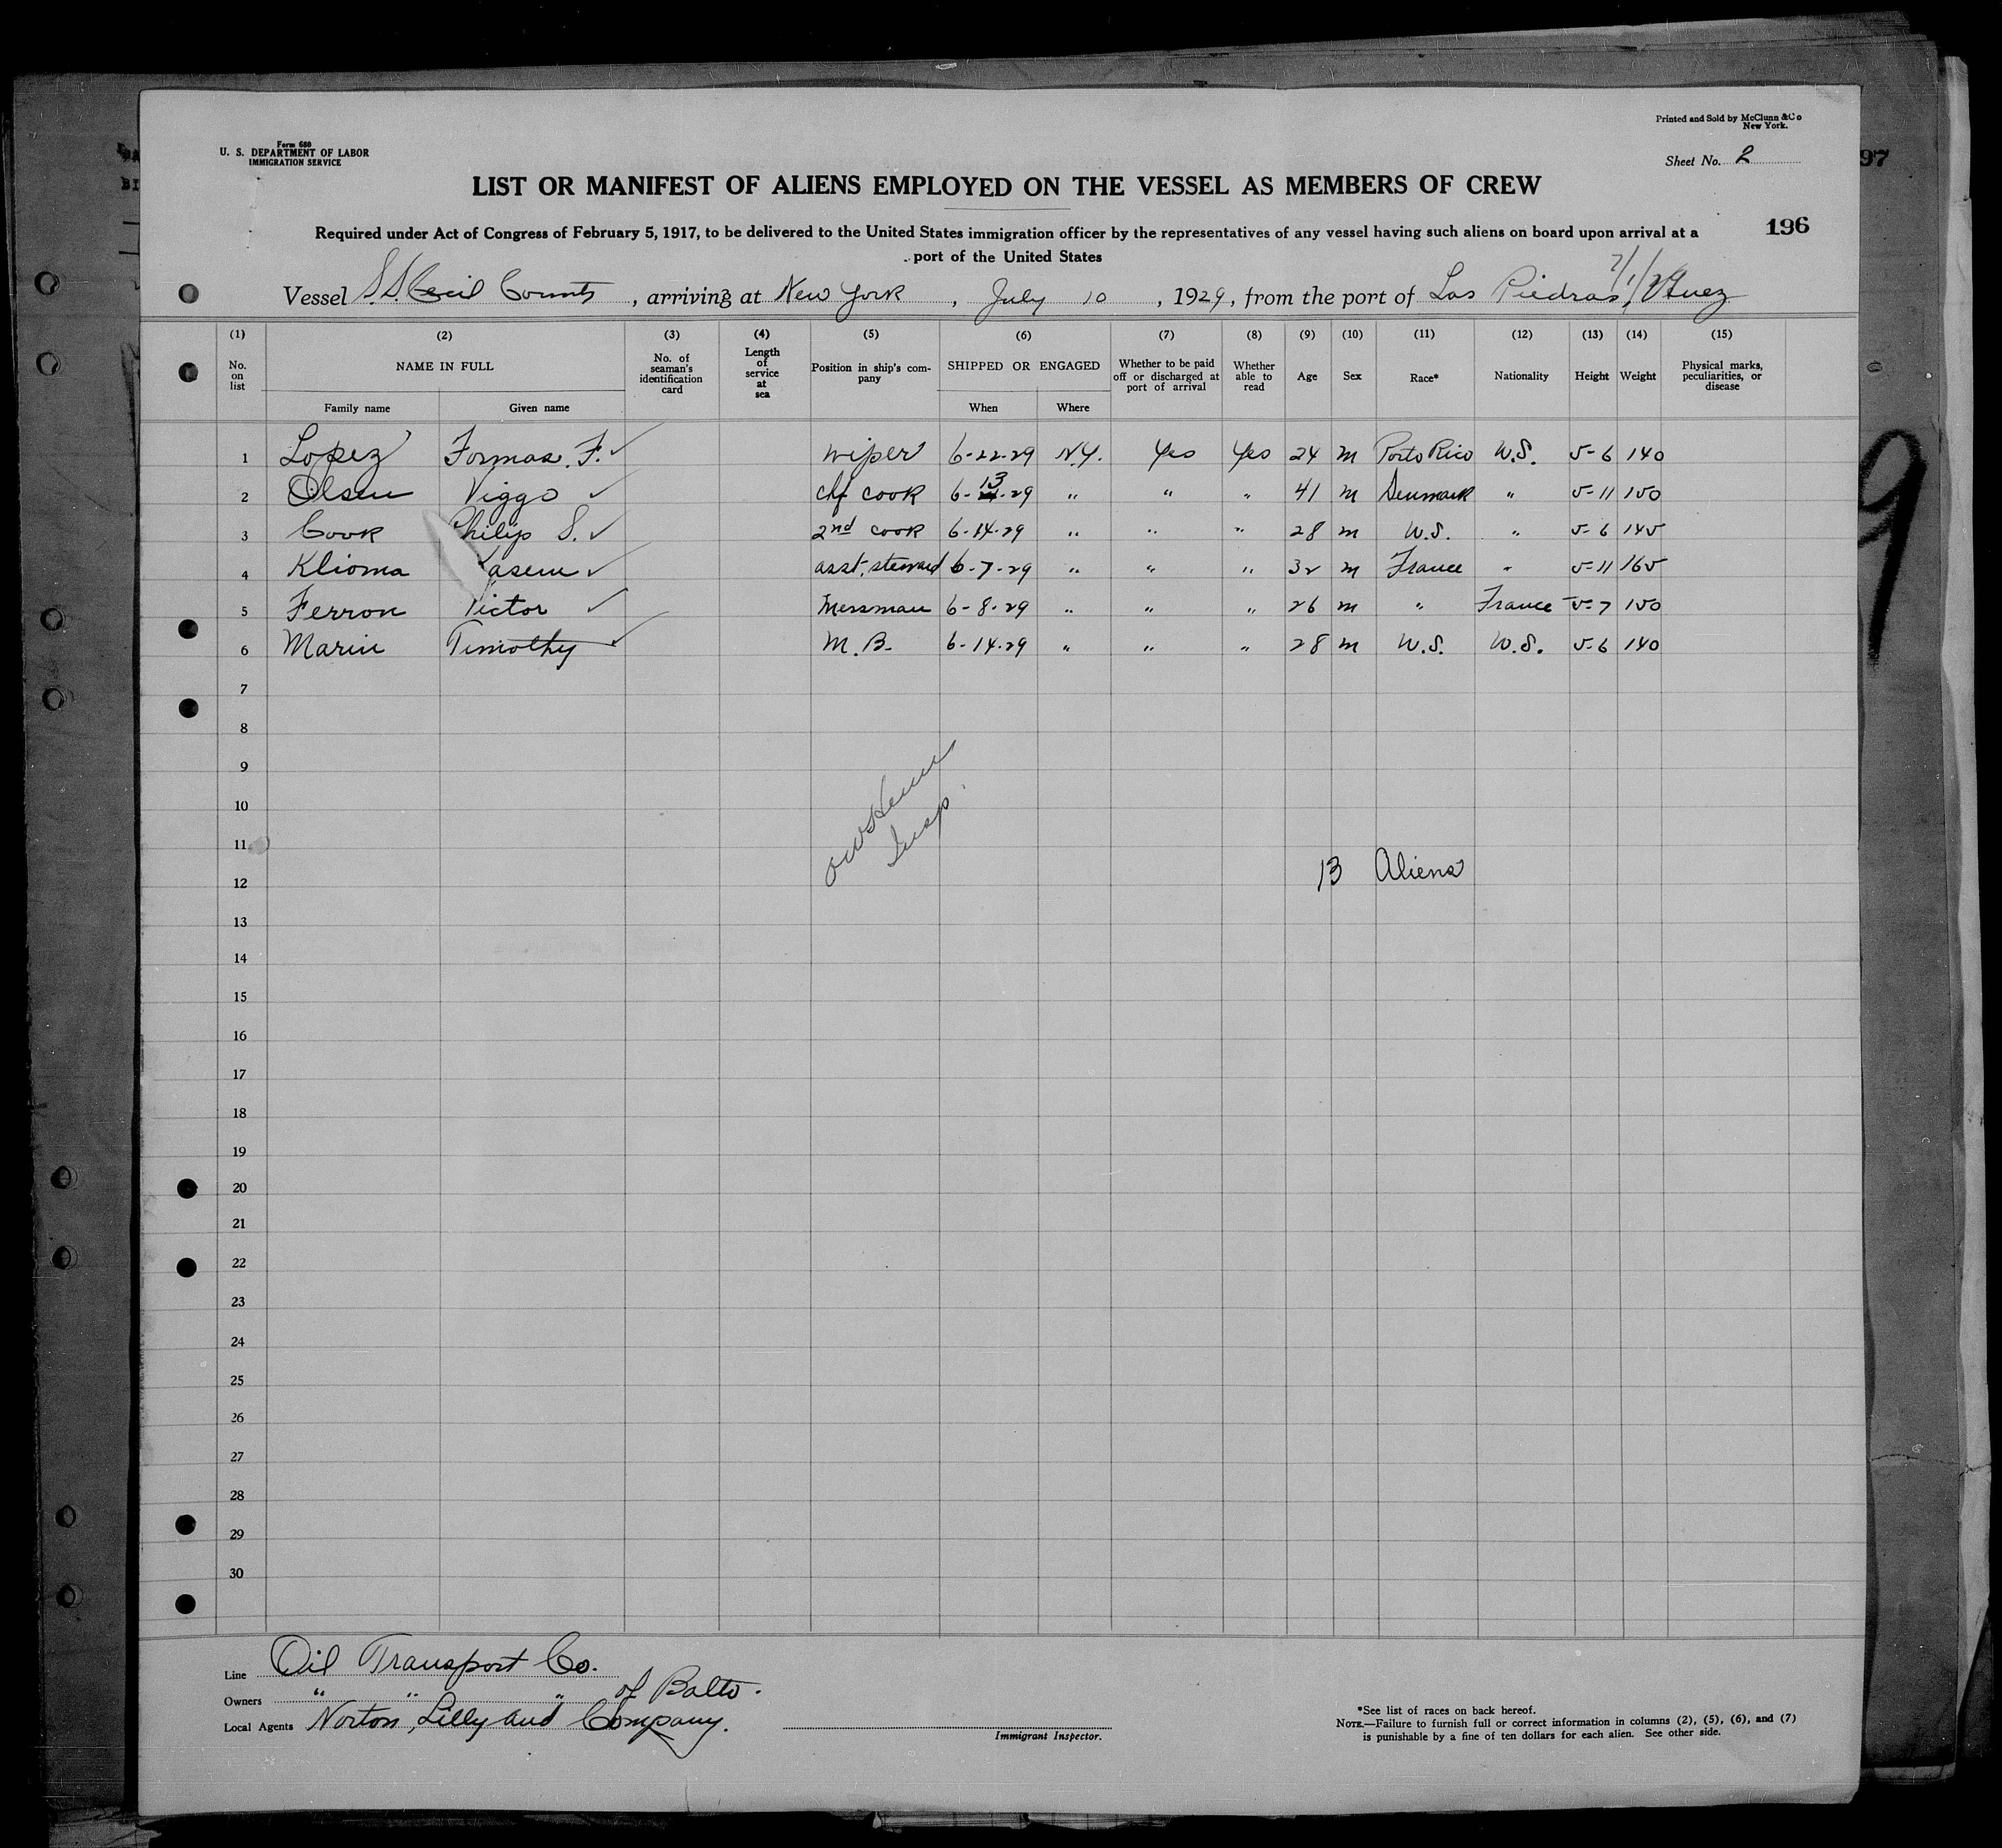 Form 680
U. S. DEPARTMENT OF LABOR
IMMIGRATION SERVICE
Printed and Sold by McClunn & Co
New York.
Sheet No. 2
97
LIST OR MANIFEST OF ALIENS EMPLOYED ON THE VESSEL AS MEMBERS OF CREW
196
Required under Act of Congress of February 5, 1917, to be delivered to the United States immigration officer by the representatives of any vessel having such aliens on board upon arrival at a
port of the United States
7/1/29
Vessel S.S. Cecil County, arriving at New York, July 10, 1929, from the port of Las Piedras,
(1) (2) (3) (4) (5) (6) (7) (8) (9) (10) (11) (12) (13) (14) (15)
No. on list NAME IN FULL No. of seaman's identification card Length of service at sea Position in ship's company SHIPPED OR ENGAGED Whether to be paid off or discharged at port of arrival Whether able to read Age Sex Race* Nationality Height Weight Physical marks, peculiarities, or disease
Family name Given name When Where
1 Lopez Formas. F. ✓ wiper 6-22-29 N.Y. Yes Yes 24 m Porto Rico U.S. 5-6 140
2 Olsen Viggo ✓ chf cook 6-13-29 " " " 41 m Denmark " 5-11 150
3 Cook Philip S. ✓ 2nd cook 6-14-29 " " " 28 m U.S. " 5-6 145
4 Klioma Kasem ✓ asst. steward 6-7-29 " " " 32 m France " 5-11 165
5 Ferron Victor ✓ Messman 6-8-29 " " " 26 m " France 5-7 150
6 Marin Timothy ✓ M.B. 6-14-29 " " " 28 m U.S. U.S. 5-6 140
7
8
9
10
11
12
Insp.
13 Aliens
13
14
15
16
17
18
19
20
21
22
23
24
25
26
27
28
29
30
Line Oil Transport Co.
Owners " " " of Balto.
Local Agents Norton, Lilly and Company.
Immigrant Inspector.
*See list of races on back hereof.
NOTE.—Failure to furnish full or correct information in columns (2), (5), (6), and (7)
is punishable by a fine of ten dollars for each alien. See other side.
9